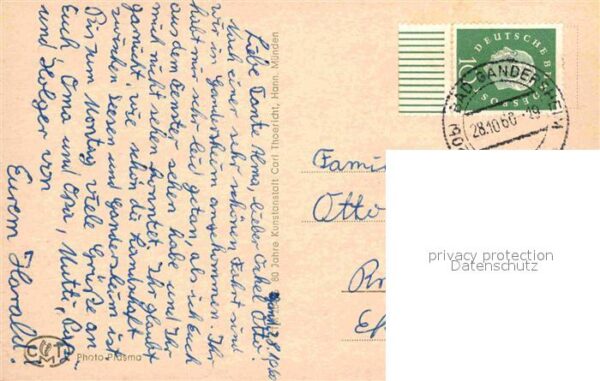 Bonn, 28.10.60
Liebe Tante Alma, lieber Onkel Otto!
Nach einer sehr schönen Fahrt sind
wir in Gandersheim angekommen. Ihr
habt mir sehr leid getan, als ich Euch
aus dem Fenster sehen habe und Ihr
mich nicht sehen konntet. Ihr glaubt
garnicht, wie schön die Landschaft
um den Seesen und Gandersheim ist
Bis zum Montag viele Grüße an
Euch, Oma und Opa, Mutti, Papa
und Holger von
Eurem Harald!
80 Jahre Kunstanstalt Carl Thoericht, Hann. Münden
CTM
Photo Prasma
DEUTSCHE BUNDESPOST
10
BAD GANDERSHEIM
28.10.60-19
Famil
Otto
privacy protection
Datenschutz